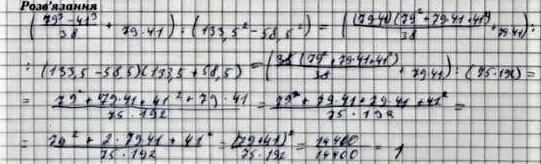 Розв'язання
( (79³ - 41³)/38 + 79·41 ) : (133,5² - 58,5²) = ( ((79-41)(79² + 79·41 + 41²))/38 + 79·41 ) :
: (133,5 - 58,5)(133,5 + 58,5) = ( (38 (79² + 79·41 + 41²))/38 + 79·41 ) : (75·192) =
= (79² + 79·41 + 41² + 79·41)/(75·192) = (79² + 79·41 + 79·41 + 41²)/(75·192) =
= (79² + 2·79·41 + 41²)/(75·192) = (79+41)²/(75·192) = 14400/14400 = 1